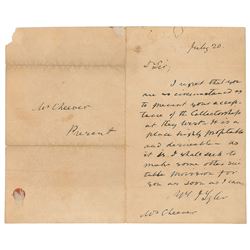 Mr Cheever
Present
July 20
D Sir,
I regret that you
are so circumstanced as
to prevent your accep-
tance of the Collectorship
at Key West. It is a
place highly profitable
and desireable as
it is. I shall seek to
make some other sui-
table provision for
you as soon as I can.
J Tyler
Mr Cheever